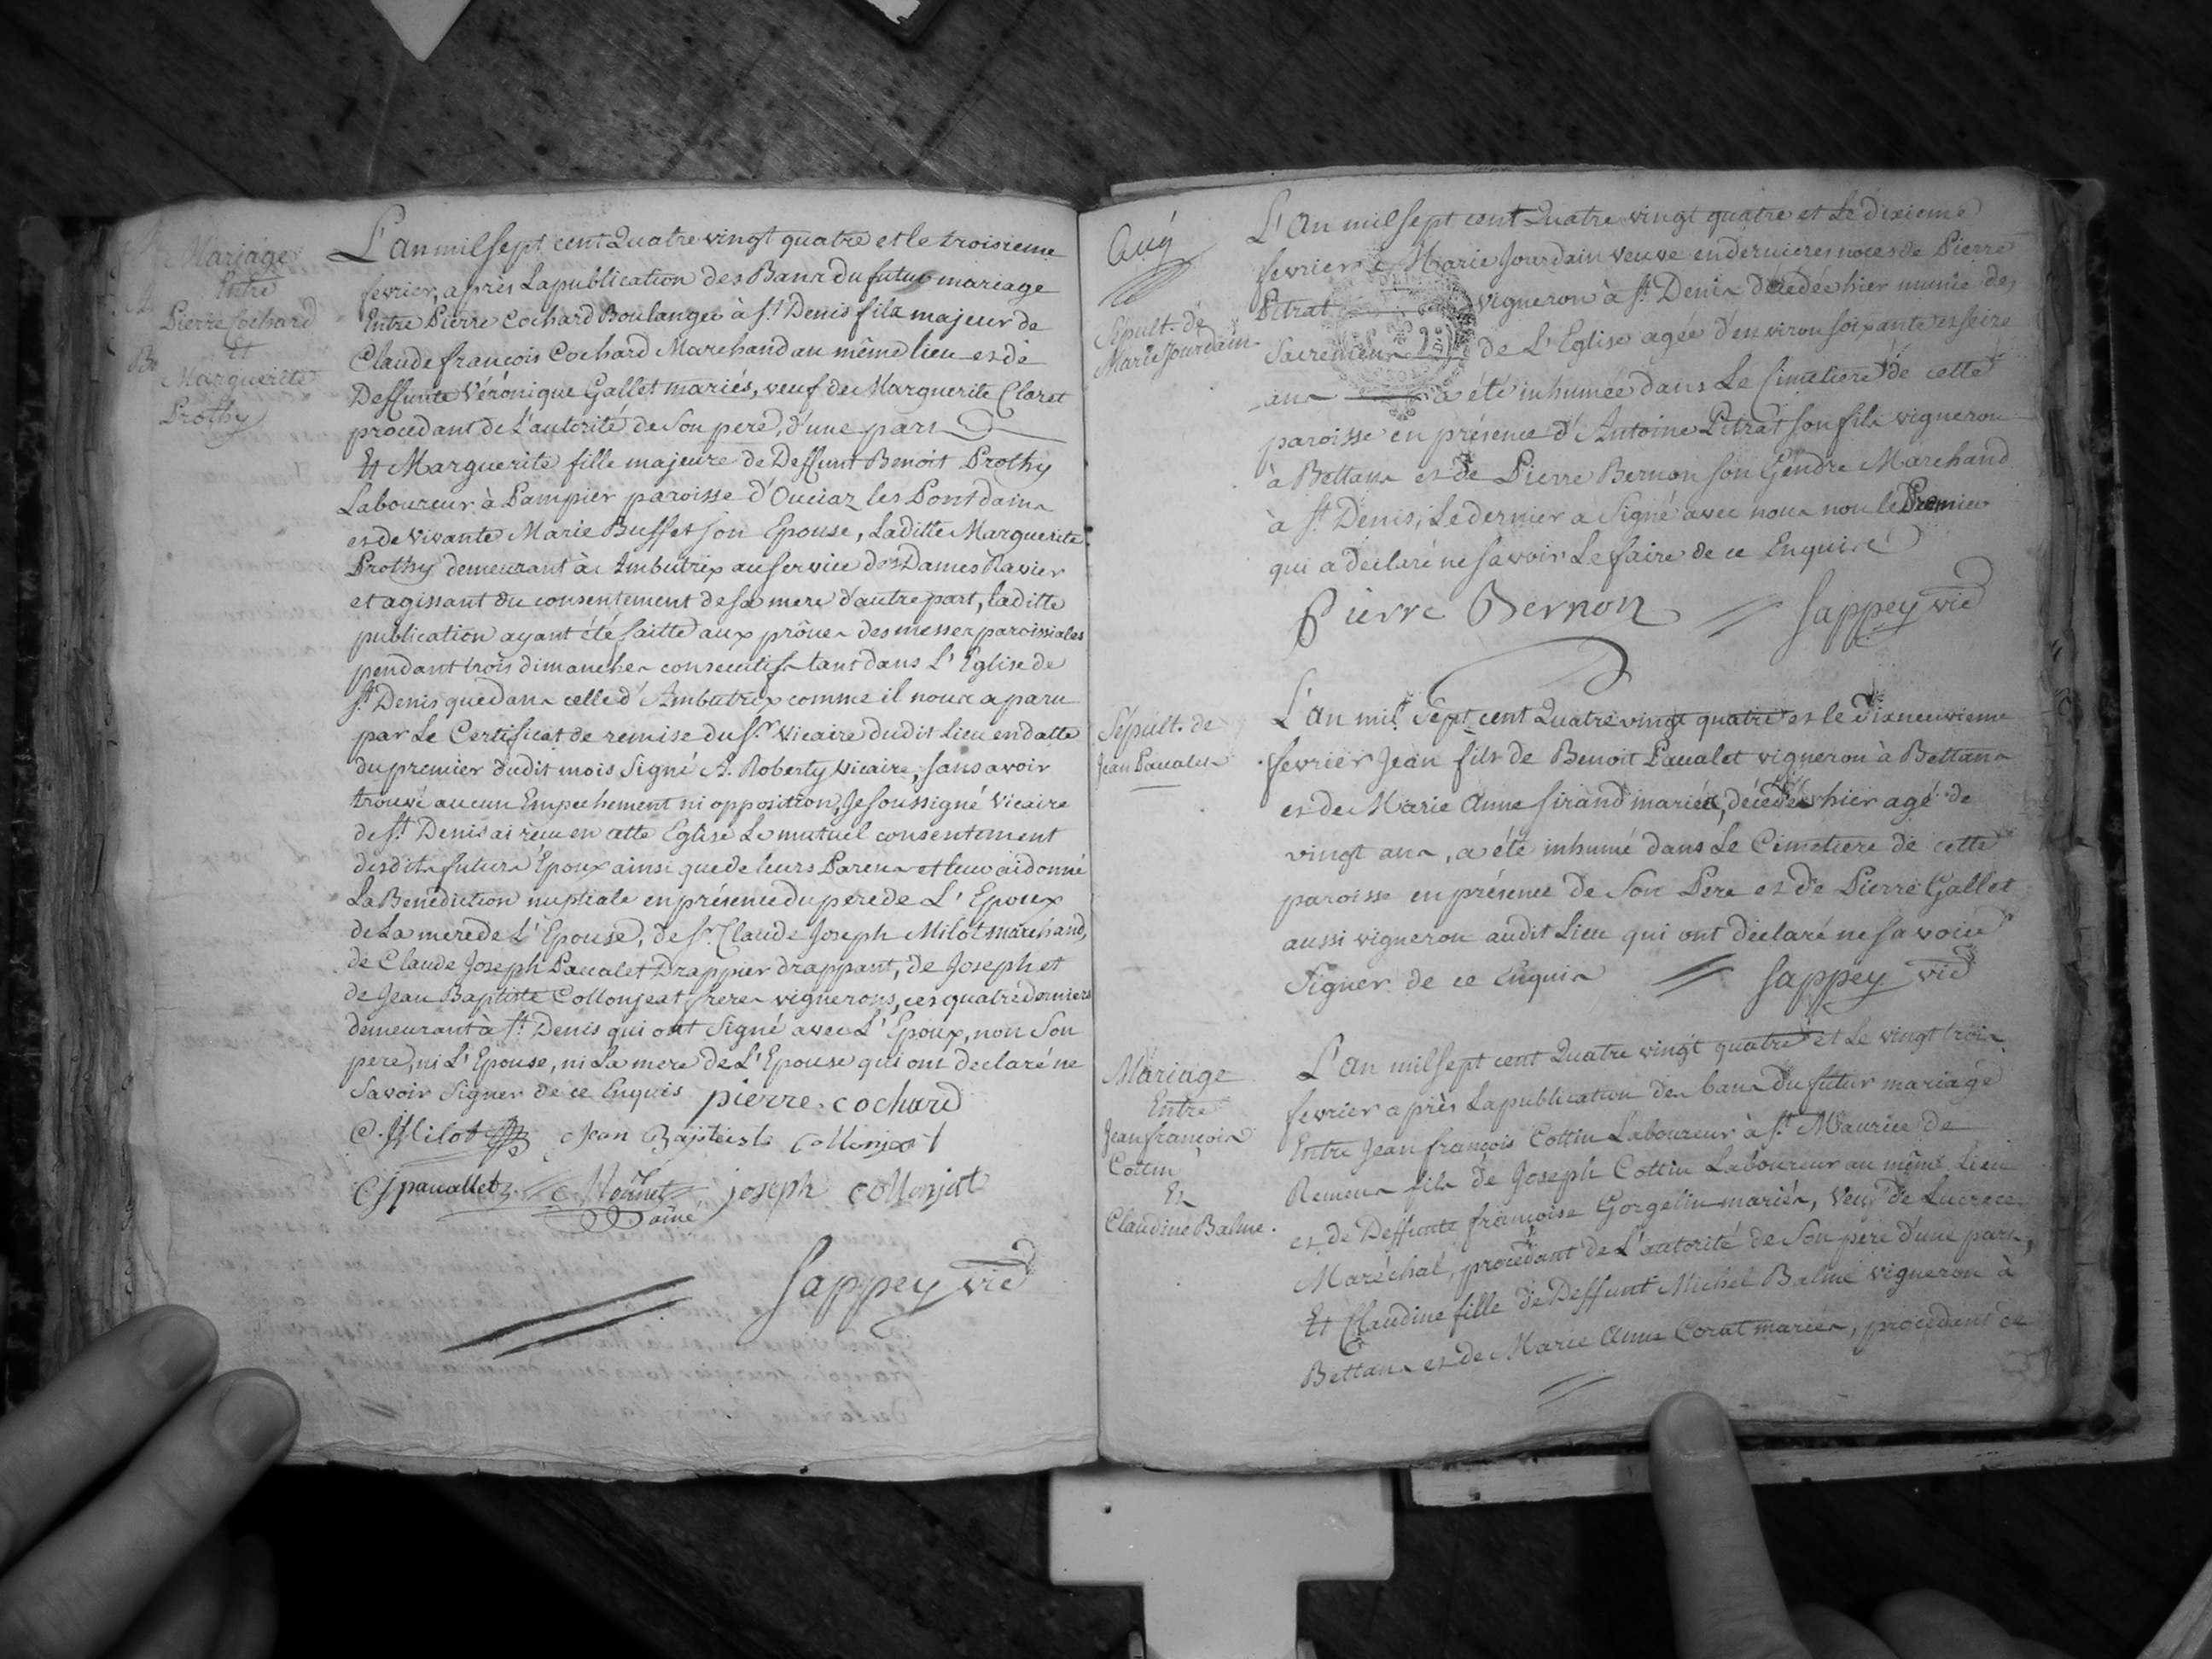 Mariage
Entre
Pierre Cochard
Et
Marguerite
Prothy
L'an mil sept cent Quatre vingt quatre et le troisieme
fevrier, après La publication des Bans du futur mariage
Entre Pierre Cochard Boulanger à St Denis fils majeur de
Claude françois Cochard Marchand au même lieu et de
Deffunte Véronique Gallet mariés, veuf de Marguerite Claret
procedant de L'autorité de Son pere, d'une part
Et Marguerite fille majeure de Deffunt Benoit Prothy
Laboureur à Pampier paroisse d'Ouciaz les Pontdains
et de vivante Marie Buffet son Epouse, Laditte Marguerite
Prothy demeurant à Ambutrix au service des Dames Ravier
et agissant du consentement de sa mere d'autre part, laditte
publication ayant été faitte aux prônes des messes paroissiales
pendant trois dimanches consecutifs tant dans L'Eglise de
St Denis que dans celle d'Ambutrix comme il nous a paru
par Le Certificat de remise du Sr Vicaire dudit Lieu en datte
du premier dudit mois Signé A. Roberty vicaire, sans avoir
trouvé aucun Empechement ni opposition, Je soussigné Vicaire
de St Denis ai reçu en cette Eglise Le mutuel consentement
desdits futurs Epoux ainsi que de leurs Parens et leur ai donné
La Benediction nuptiale en présence du pere de L'Epoux
de La mere de L'Epouse, de Sr Claude Joseph Milot marchand,
de Claude Joseph Paualet Drappier drappant, de Joseph et
de Jean Baptiste Collonjeat freres vignerons, ces quatre derniers
demeurant à St Denis qui ont Signé avec L'Epoux, non Son
pere, ni L'Epouse, ni La mere de L'Epouse qui ont declaré ne
Savoir Signer de ce Enquis pierre cochard
C. J Milot Jean Baptiste collonjeat
C j pauallet joseph collonjat
aîné
Sappey vic
Aug
Sépult. de
Marie Jourdain
L'An mil sept cent Quatre vingt quatre et Le dixieme
fevrier Marie Jourdain veuve en dernieres noces de Pierre
Pitrat vigneron à St Denis décédée hier munie des
Sacremens de L'Eglise agée d'environ soixante et seize
ans a été inhumée dans Le Cimetiere de cette
paroisse en présence d'Antoine Pitrat son fils vigneron
à Bettans et de Pierre Bernon son Gendre Marchand
à St Denis, Le dernier a Signé avec nous non le Premier
qui a declaré ne savoir Le faire de ce Enquire
Pierre Bernon Sappey vic
Sépult. de
Jean Paualet
L'An mil Sept cent Quatre vingt quatre et le dixneuvieme
fevrier Jean fils de Benoit Paualet vigneron à Bettans
et de Marie Anne Sirand mariés, décédé hier agé de
vingt ans, a été inhumé dans Le Cimetiere de cette
paroisse en présence de Son Pere et de Pierre Gallet
aussi vigneron audit Lieu qui ont déclaré ne savoir
Signer de ce Enquis Sappey vic
Mariage
Entre
Jean françois
Cottin
Et
Claudine Balme.
L'An mil sept cent Quatre vingt quatre et Le vingt trois
fevrier après La publication des bans du futur mariage
Entre Jean françois Cottin Laboureur à St Maurice de
Remens fils de Joseph Cottin Laboureur au même Lieu
et de Deffunte françoise Gorgelin mariés, Veuf de Lucrece
Maréchal, procédant de L'autorité de Son pere d'une part,
Et Claudine fille de Deffunt Michel Balme vigneron à
Bettans et de Marie Anne Corat mariés, procedant de